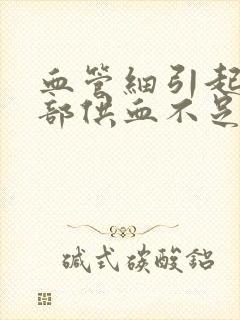 血管細引起
部供血不足
碱式碳酸鋁